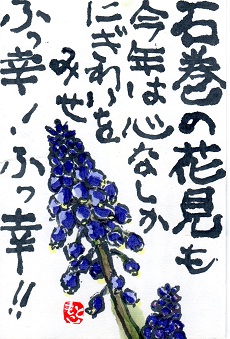 石巻の花見も
今年は心なしか
にぎわいを
みせ
ふっ幸!ふっ幸!!